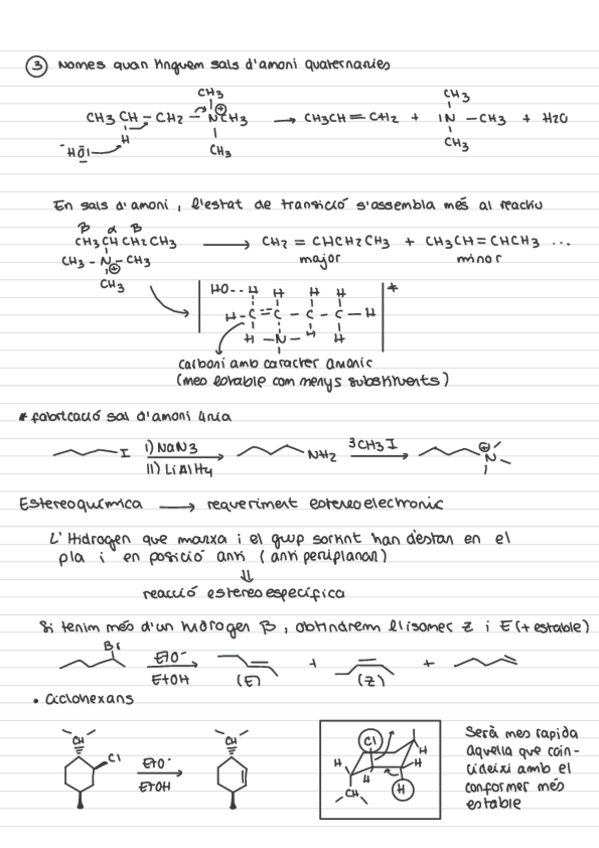 ③ Nomes quan tinguem sals d'amoni quaternaries
CH3
CH3CH – CH2 – N⊕CH3 → CH3CH=CH2 + IN –CH3 + H2O
H
-HŌI
CH3
CH3
CH3
En sals d'amoni, l'estat de transició s'assembla més al reactiu
β α β
CH3CHCH2CH3 → CH2 = CHCH2CH3 + CH3CH=CHCH3 ...
CH3 – N – CH3
⊕
CH3
major
minor
HO-- H H H H *
H-C=C – C – C – H
H –N– H H
carboni amb caracter anionic
(mes estable com menys substituents)
* fabricació sal d'amoni 4nia
I
i) NaN3
ii) LiAlH4
NH2
3CH3I
⊕
N
Estereoquímica → requeriment estereoelectronic
L'Hidrogen que marxa i el grup sortint han d'estar en el
pla i en posició anti (anti periplanar)
⇓
reacció estereoespecífica
Si tenim més d'un hidrogen β, obtindrem l'isomer Z i E (+ estable)
Br
EtO-
EtOH
(E)
+
(Z)
+
• Ciclohexans
CH
Cl
EtO-
EtOH
CH
Cl
H
H
H
H
H
CH
Serà mes rapida
aquella que coin-
cideixi amb el
conformer més
estable